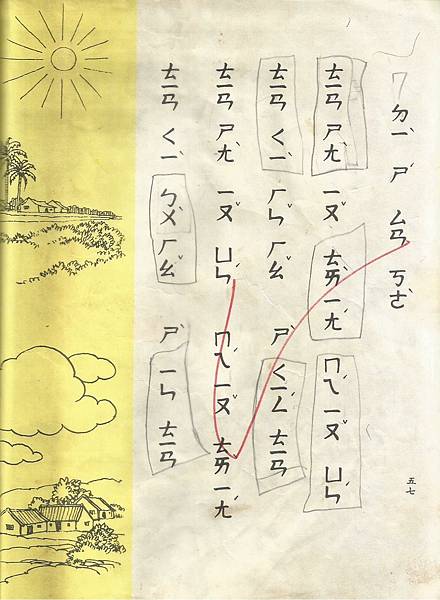 ㄉㄧˋ ㄕˊ ㄙㄢ ㄎㄜˋ
ㄊㄧㄢ ㄕㄤˋ ㄧㄡˇ ㄊㄞˋ ㄧㄤˊ ㄇㄟˊ ㄧㄡˇ ㄩㄣˊ
ㄊㄧㄢ ㄑㄧˋ ㄏㄣˇ ㄏㄠˇ ㄕˋ ㄑㄧㄥˊ ㄊㄧㄢ
ㄊㄧㄢ ㄕㄤˋ ㄧㄡˇ ㄩㄣˊ ㄇㄟˊ ㄧㄡˇ ㄊㄞˋ ㄧㄤˊ
ㄊㄧㄢ ㄑㄧˋ ㄅㄨˋ ㄏㄠˇ ㄕˋ ㄧㄣ ㄊㄧㄢ
五七